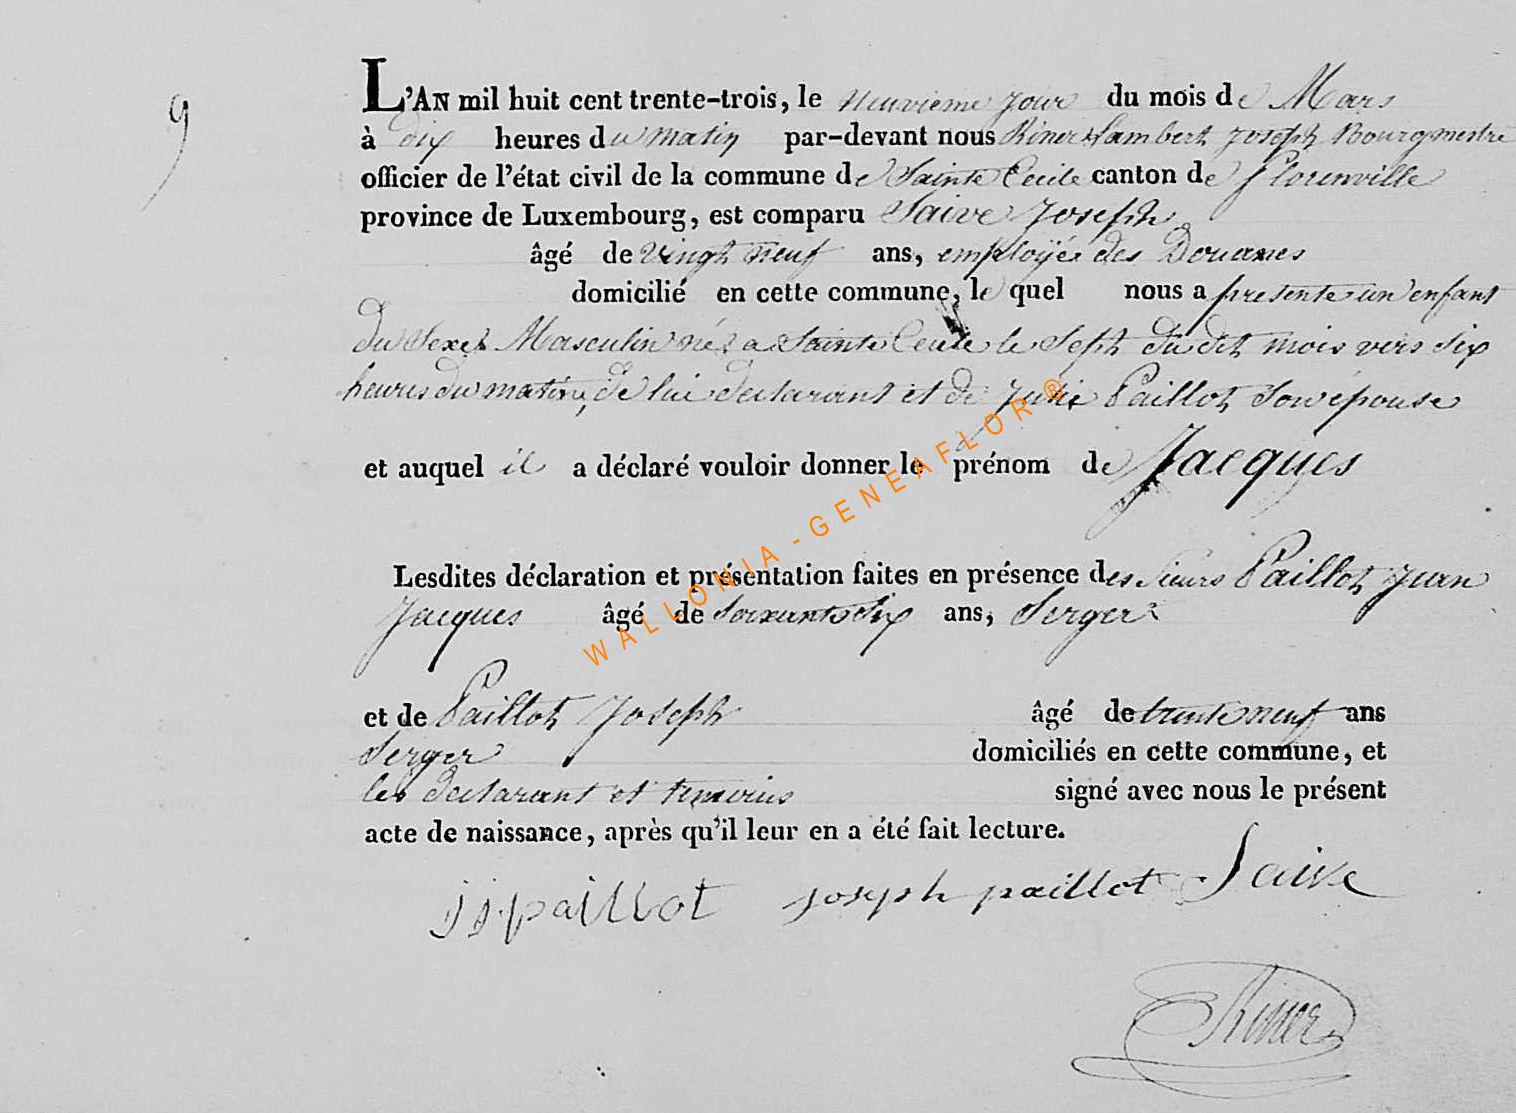 9
L'AN mil huit cent trente-trois, le neuvieme jour du mois de Mars
à dix heures du matin par-devant nous Riner Lambert Joseph Bourgmestre
officier de l'état civil de la commune de Sainte Cecile canton de Florenville
province de Luxembourg, est comparu Saive Joseph
âgé de vingt neuf ans, employé des Douanes
domicilié en cette commune, le quel nous a presente un enfant
du Sexe Masculin né a Sainte Cecile le Sept du dit mois vers six
heures du matin, de lui declarant et de Julie Paillot son épouse
et auquel il a déclaré vouloir donner le prénom de Jacques
Lesdites déclaration et présentation faites en présence des Sieurs Paillot Jean
Jacques âgé de soixante six ans, Serger
et de Paillot Joseph âgé de trente neuf ans
Serger domiciliés en cette commune, et
les declarant et temoins signé avec nous le présent
acte de naissance, après qu'il leur en a été fait lecture.
jj paillot joseph paillot Saive
Riner
WALLONIA-GENEAFLOR®